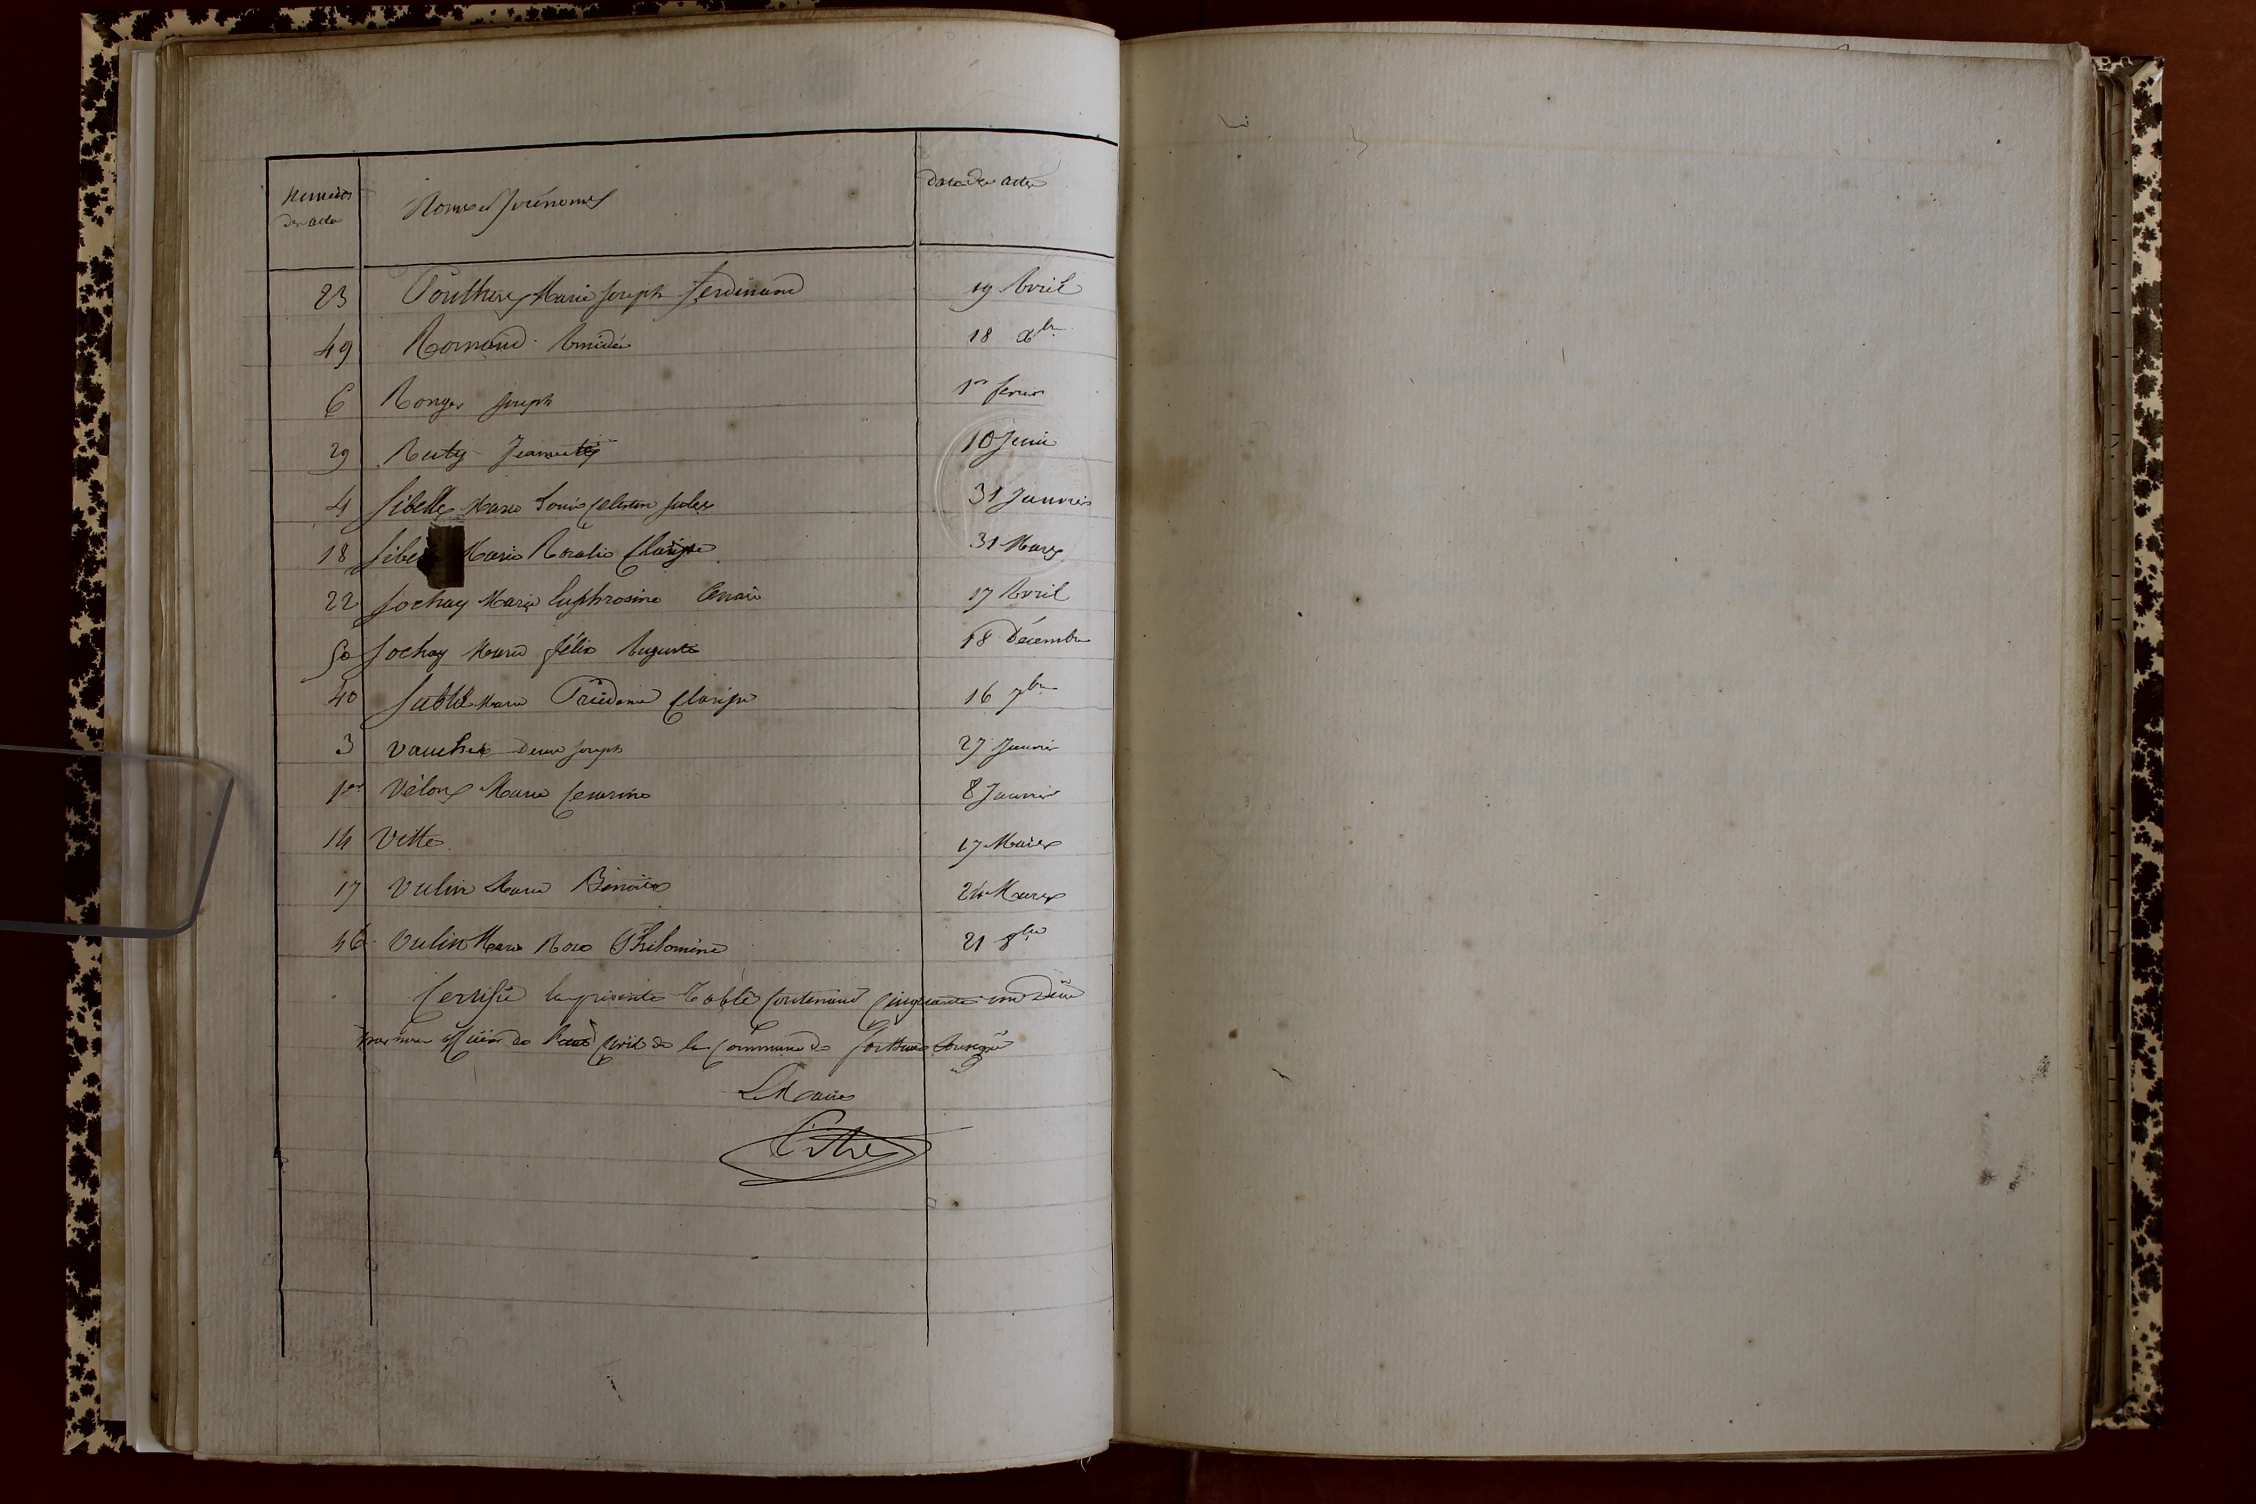 Numéros des actes Noms et Prénoms Date des actes
23 Pouthier Marie Joseph Ferdinand 19 Avril
49 Romand Amédée 18 Xbre
6 Ronger Joseph 1er fevrier
29 Ruty Jeannette 10 Juin
4 Sibelle Marie Louis Celestin Jules 31 Janvier
18 Sibe Marie Rosalie Clarisse 31 Mars
22 Sochay Marie Euphrosine 17 Avril
50 Sochay Marie félix Auguste 18 Décembre
40 Marie Clarisse 16 7bre
3 Vaucher Joseph 27 Janvier
1er Marie Cesarine 8 Janvier
14 Vette 17 Mars
17 Vulin Marie Benoite 24 Mars
46 Vulin Marie Rose Philomine 21 8bre
Certifié la présente Table Contenant Cinquante un
par nous officier de l'état Civil de la Commune de
Le Maire